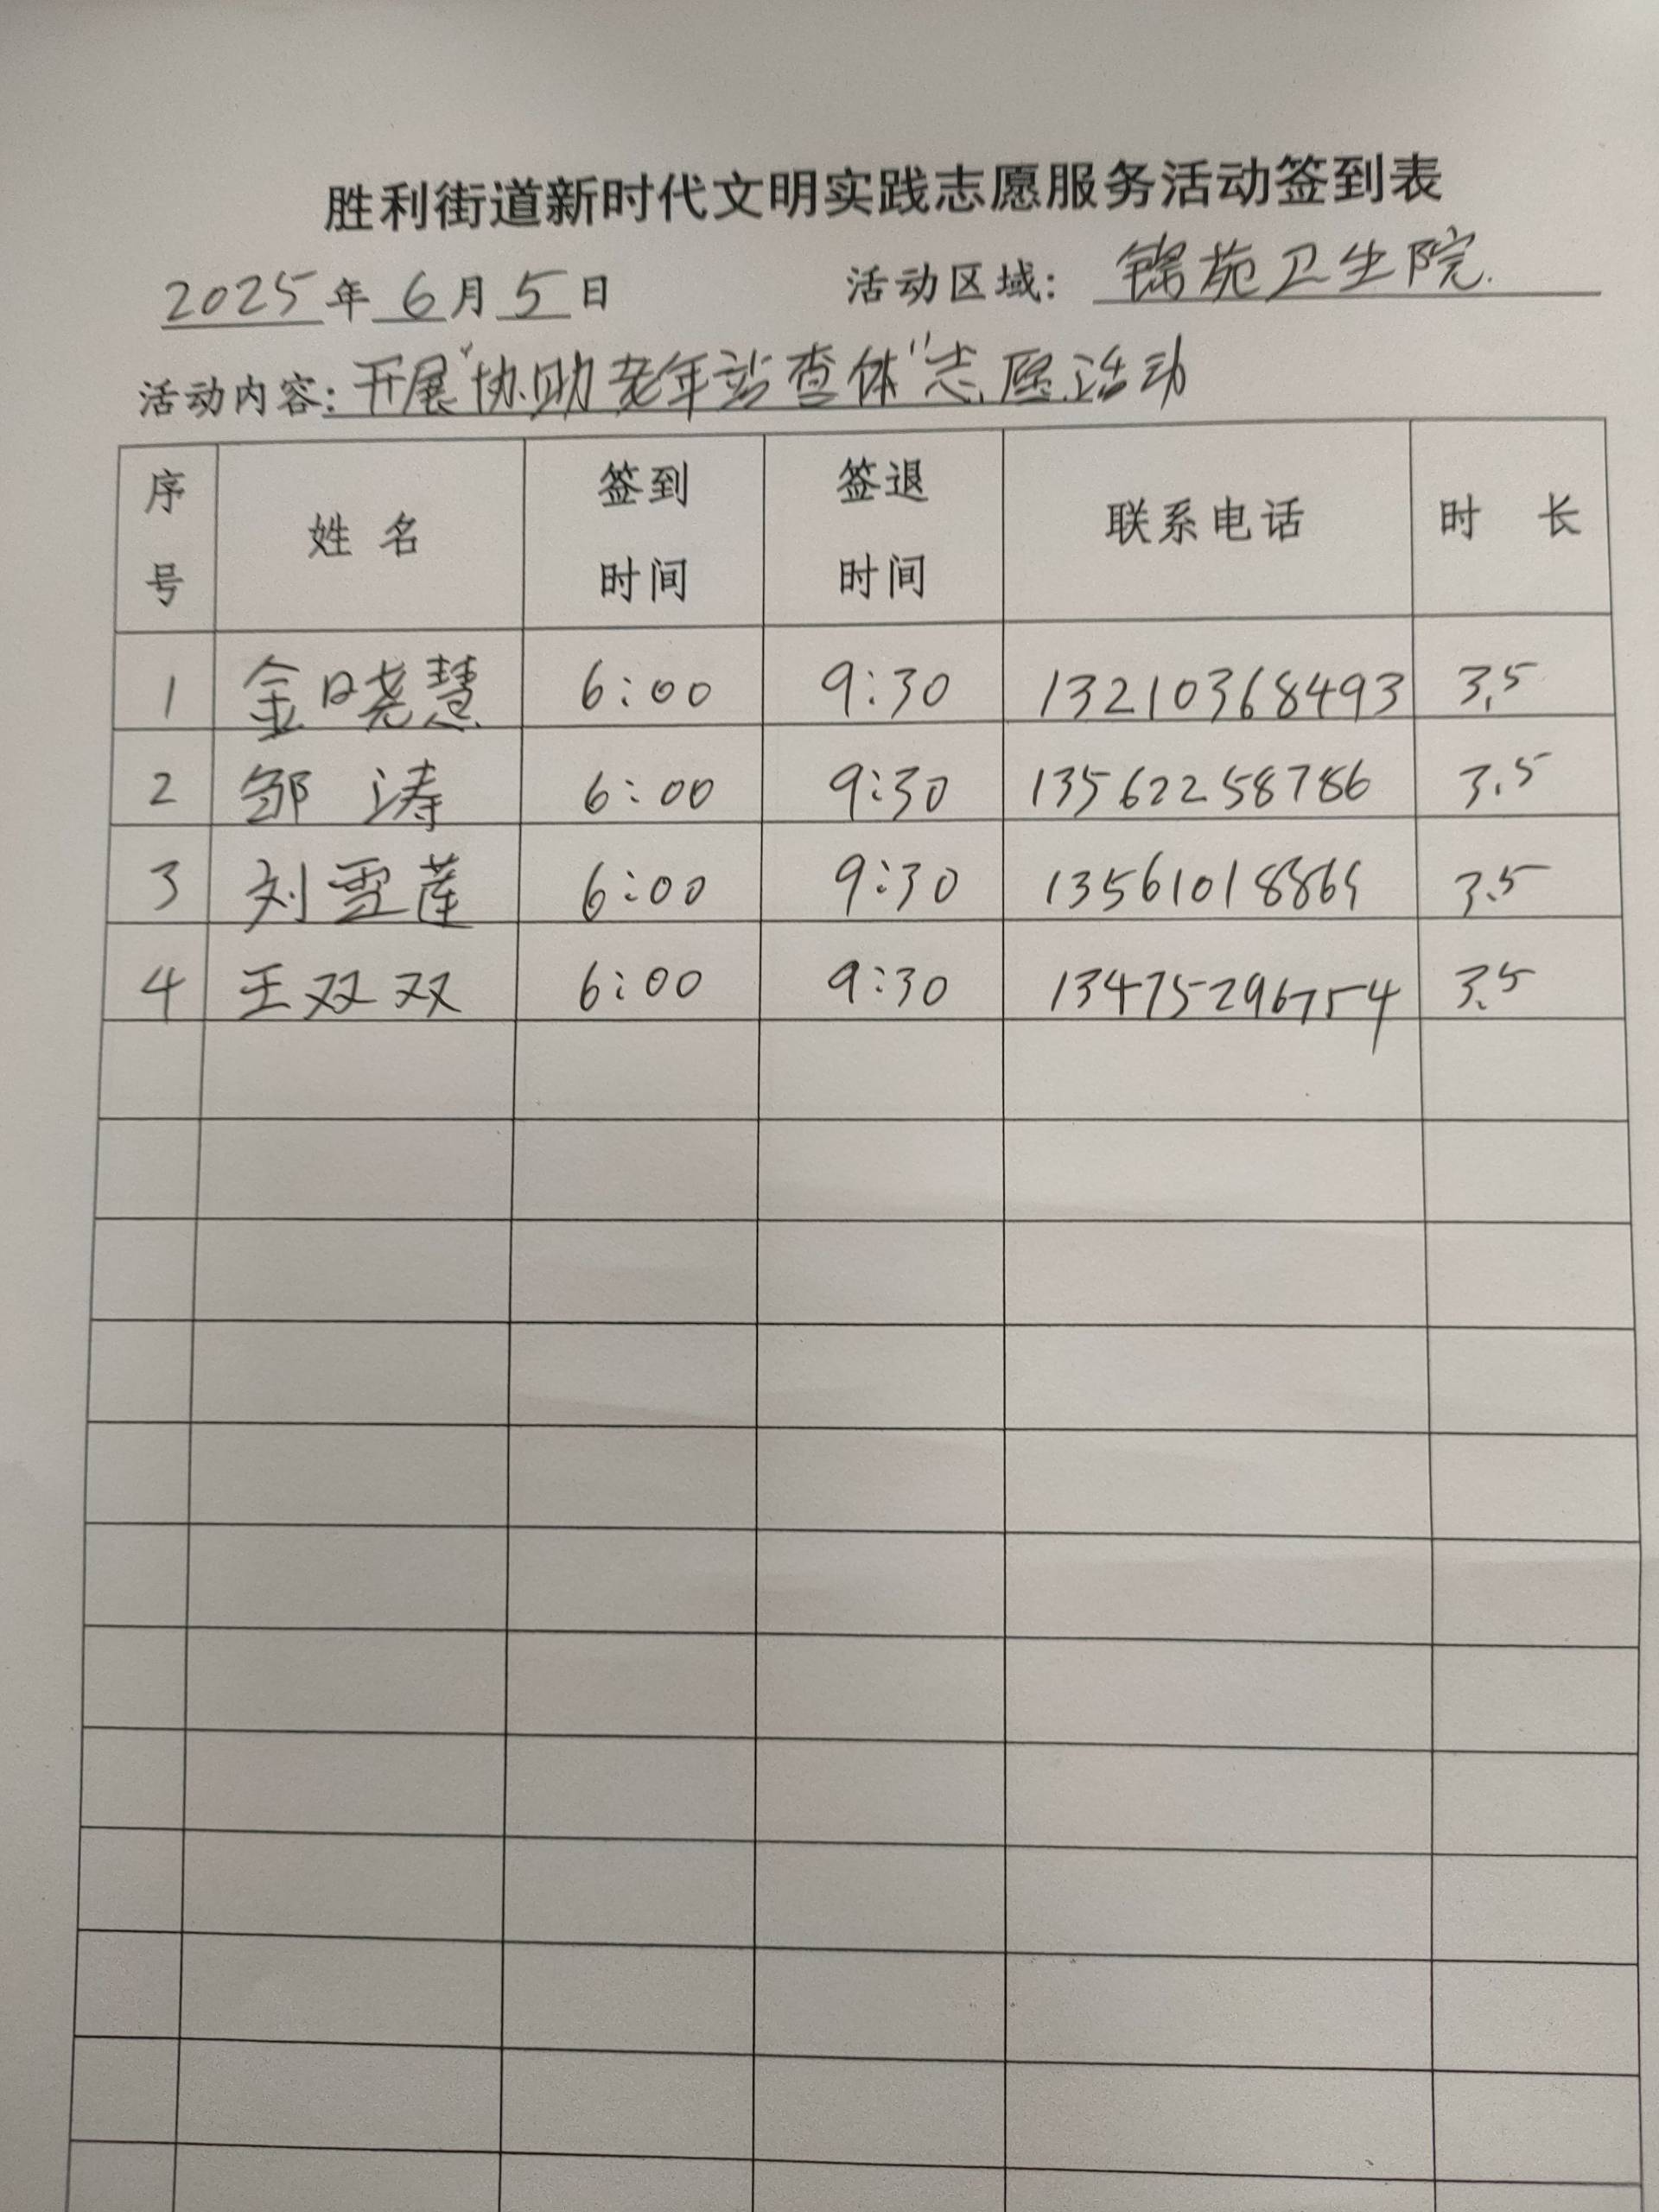 胜利街道新时代文明实践志愿服务活动签到表
2025年6月5日 活动区域：锦苑卫生院.
活动内容：开展“协助老年站查体”志愿活动
序号 姓名 签到时间 签退时间 联系电话 时长
1 金晓慧 6:00 9:30 13210368493 3.5
2 邹涛 6:00 9:30 13562258786 3.5
3 刘雪莲 6:00 9:30 3.5
4 王双双 6:00 9:30 13475296754 3.5